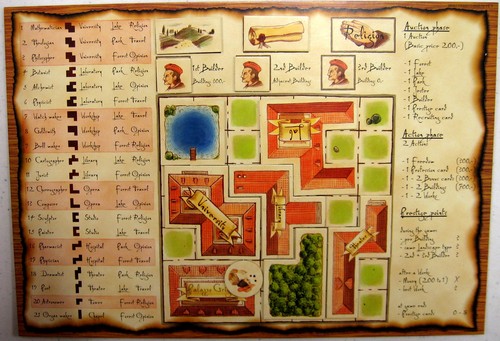 1 Mathematician University Lake Religion
2 Theologian University Park Travel
3 Philosopher University Forest Opinion
4 Botanist Laboratory Park Religion
5 Alchemist Laboratory Lake Opinion
6 Physicist Laboratory Forest Travel
7 Watch maker Workshop Lake Travel
8 Goldsmith Workshop Park Opinion
9 Bell maker Workshop Forest Religion
10 Cartographer Library Park Religion
11 Jurist Library Forest Opinion
12 Choreographer Opera Forest Travel
13 Composer Opera Lake Opinion
14 Sculptor Studio Forest Religion
15 Painter Studio Lake Travel
16 Pharmacist Hospital Park Opinion
17 Physician Hospital Forest Travel
18 Dramatist Theater Park Religion
19 Poet Theater Park Travel
20 Astronomer Tower Forest Religion
21 Organ maker Chapel Forest Religion
Religion
1st Builder
Building 100,-
2nd Builder
Adjacent Building
2nd Builder
Building 0,-
University
Library
Theater
Auction phase
1 Auction
(Basic price 200,-)
- 1 Forest
- 1 Lake
- 1 Park
- 1 Jester
- 1 Builder
- 1 Prestige card
- 1 Recruiting card
Action phase
2 Action
- 1 Freedom
- 1 Profession card
- 1 - 2 Bonus cards
- 1 - 2 Building
- 1 - 2 Works
Prestige points
during the game:
- per Building
- same landscape type
- 2nd + 3rd Builder
after a Work
- Money
- best Work
at game end:
- Prestige cards 0 - 8